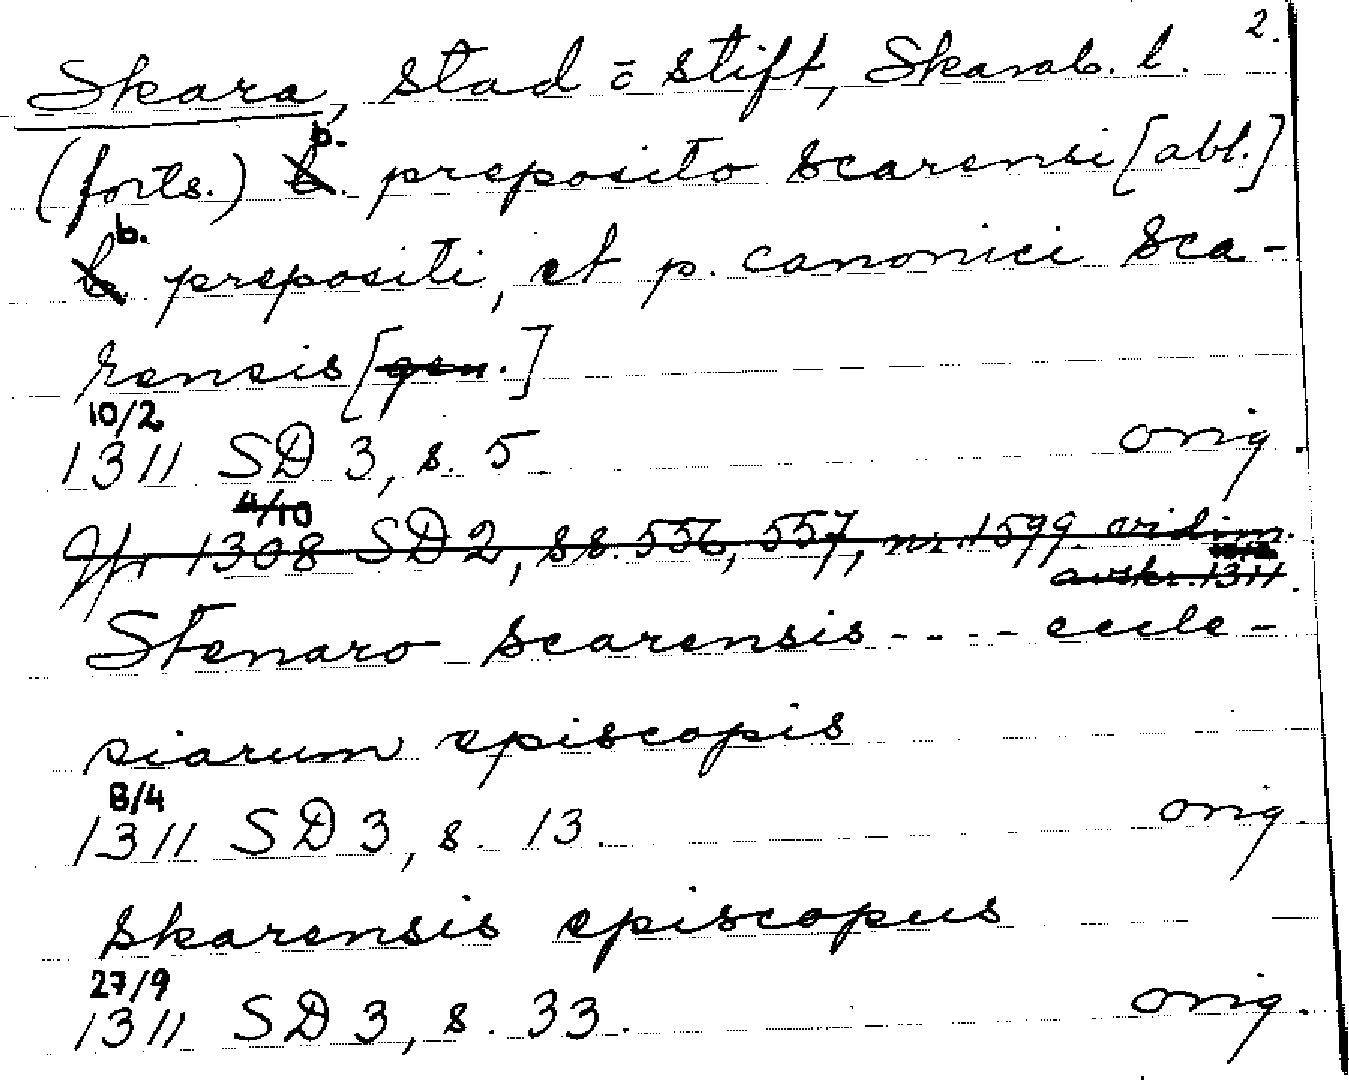 2.
Skara, stad o stift, Skarab. l.
(forts.) b. preposito scarensi [abl.]
b. prepositi, et p. canonici Sca-
rensis [gen.]
10/2
1311 SD 3, s. 5 orig.
4/10
Jfr 1308 SD 2, ss. 556, 557, nr. 1599. vidim.
avskr. 1311.
Stenaro scarensis - - - - eccle-
siarum episcopis
8/4
1311 SD 3, s. 13. orig.
skarensis episcopus
27/9
1311 SD 3, s. 33. orig.